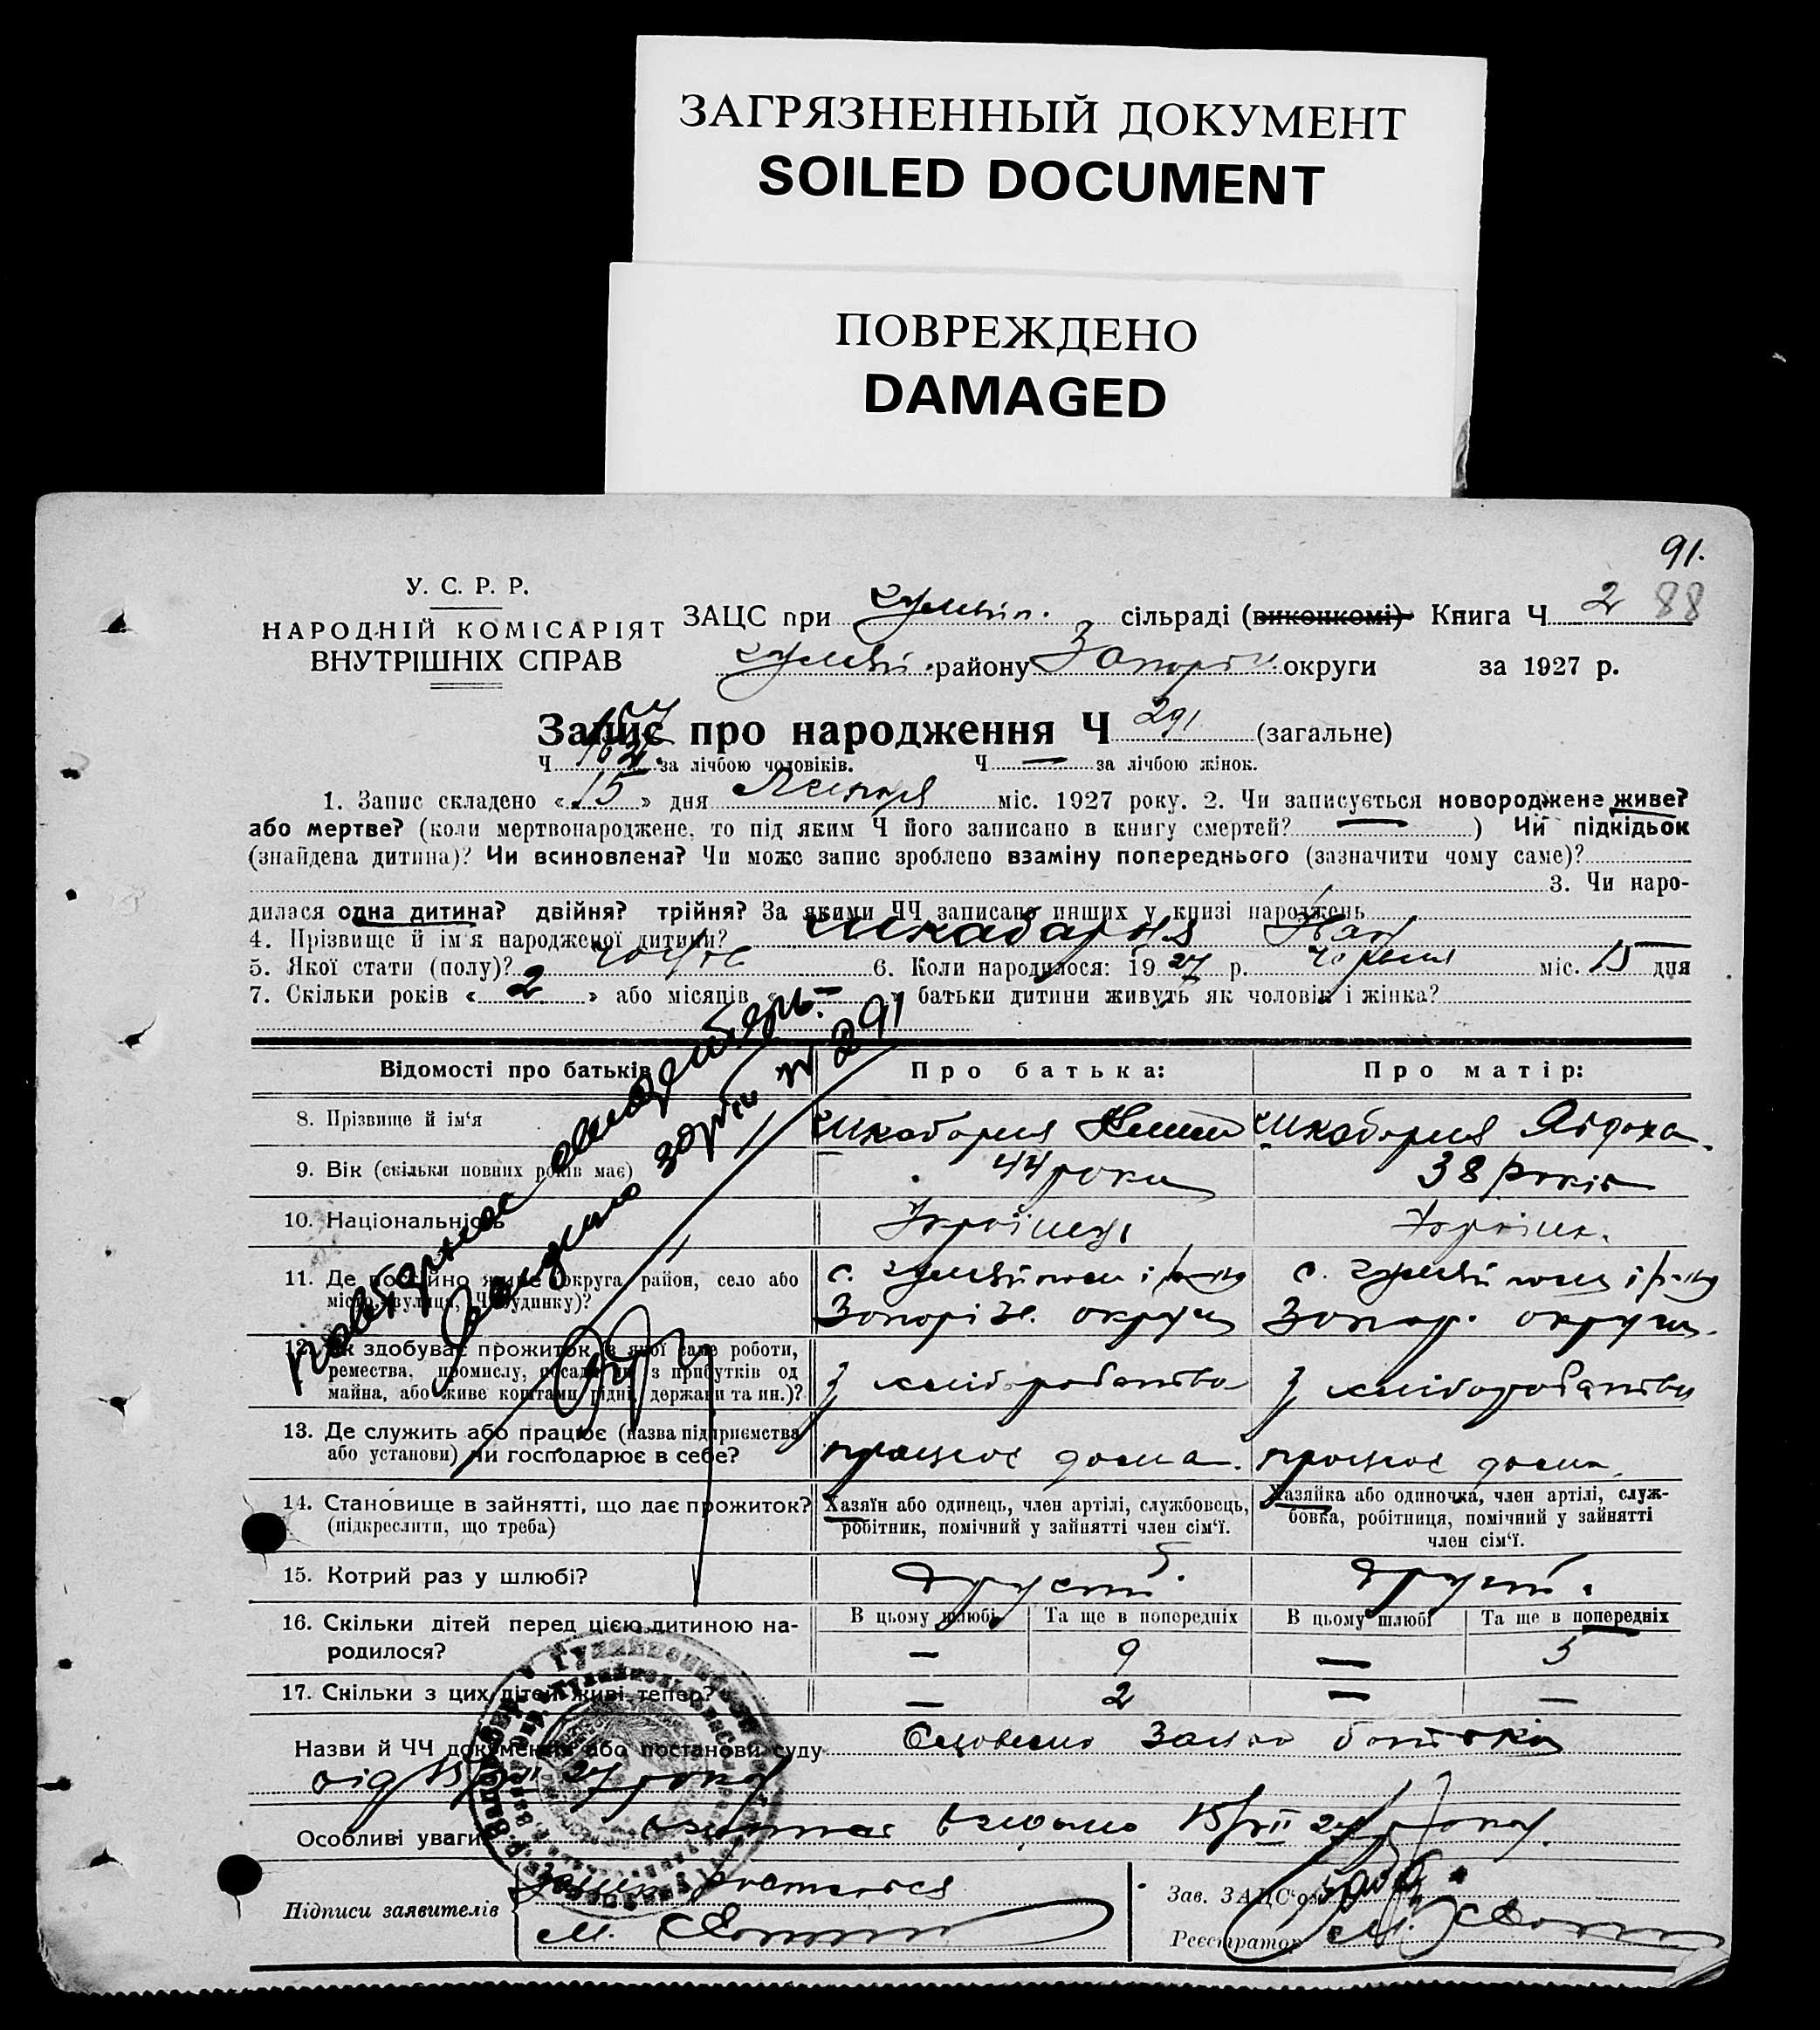 ЗАГРЯЗНЕННЫЙ ДОКУМЕНТ
SOILED DOCUMENT
ПОВРЕЖДЕНО
DAMAGED
91.
У. С. Р. Р.
НАРОДНІЙ КОМІСАРІЯТ
ВНУТРІШНІХ СПРАВ
ЗАЦС при сільраді (виконкомі) Книга Ч 2 88
району Запоріз округи за 1927 р.
Запис про народження Ч 291 (загальне)
Ч за лічбою чоловіків. Ч — за лічбою жінок.
1. Запис складено « 15 » дня міс. 1927 року. 2. Чи записується новороджене живе?
або мертве? (коли мертвонароджене, то під яким Ч його записано в книгу смертей? — ) Чи підкідьок
(знайдена дитина)? Чи всиновлена? Чи може запис зроблено взаміну попереднього (зазначити чому саме)?
3. Чи наро-
дилася одна дитина? двійня? трійня? За якими ЧЧ записано инших у книзі народжень
4. Прізвище й ім'я народженої дитини? Іван —
5. Якої стати (полу)? 6. Коли народилося: 1927 р. червня міс. 15 дня
7. Скільки років « 2 » або місяців « — » батьки дитини живуть як чоловік і жінка?
№ 291
Відомості про батьків Про батька: Про матір:
8. Прізвище й ім'я Явдоха
9. Вік (скільки повних років має) 44 роки 38 років
10. Національність Українець Українк.
11. Де постійно живе (округа, район, село або
місто, вулиця, Ч будинку)? Запоріж. округи Запор. округи
12. Як здобуває прожиток (з якої саме роботи,
ремества, промислу, посади чи з прибутків од
майна, або живе коштами рідні, держави та ин.)? З хліборобства З хліборобства
13. Де служить або працює (назва підприємства
або установи) чи господарює в себе? працює дома. працює дома.
14. Становище в зайнятті, що дає прожиток?
(підкреслити, що треба)
Хазяїн або одинець, член артілі, службовець,
робітник, помічний у зайнятті член сім'ї.
Хазяйка або одиночка, член артілі, служ-
бовка, робітниця, помічний у зайнятті
член сім'ї.
15. Котрий раз у шлюбі?
16. Скільки дітей перед цією дитиною на-
родилося?
В цьому шлюбі Та ще в попередніх В цьому шлюбі Та ще в попередніх
— 9 — 5
17. Скільки з цих дітей живі тепер? — 2 — —
Назви й ЧЧ документів або постанови суду Словесна Заява батька
від 15/VII 27 року
Особливі уваги 15/VII 27 року.
Підписи заявителів
М.
Зав. ЗАЦС'ом
Реєстратор М.